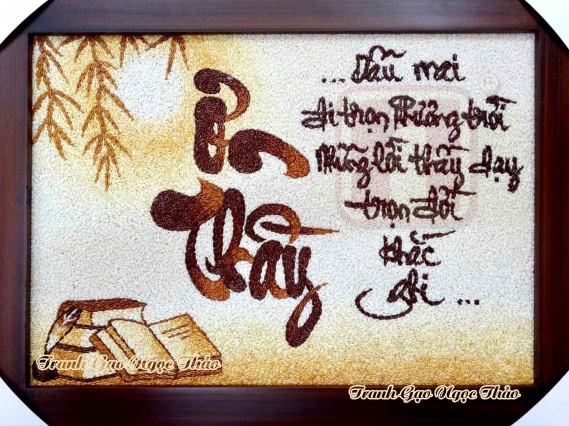 Ơn
Thầy
... Dẫu mai
đi trọn Phương trời
Những lời thầy dạy
trọn đời
khắc
ghi ...
Tranh Gạo Ngọc Thảo
Tranh Gạo Ngọc Thảo